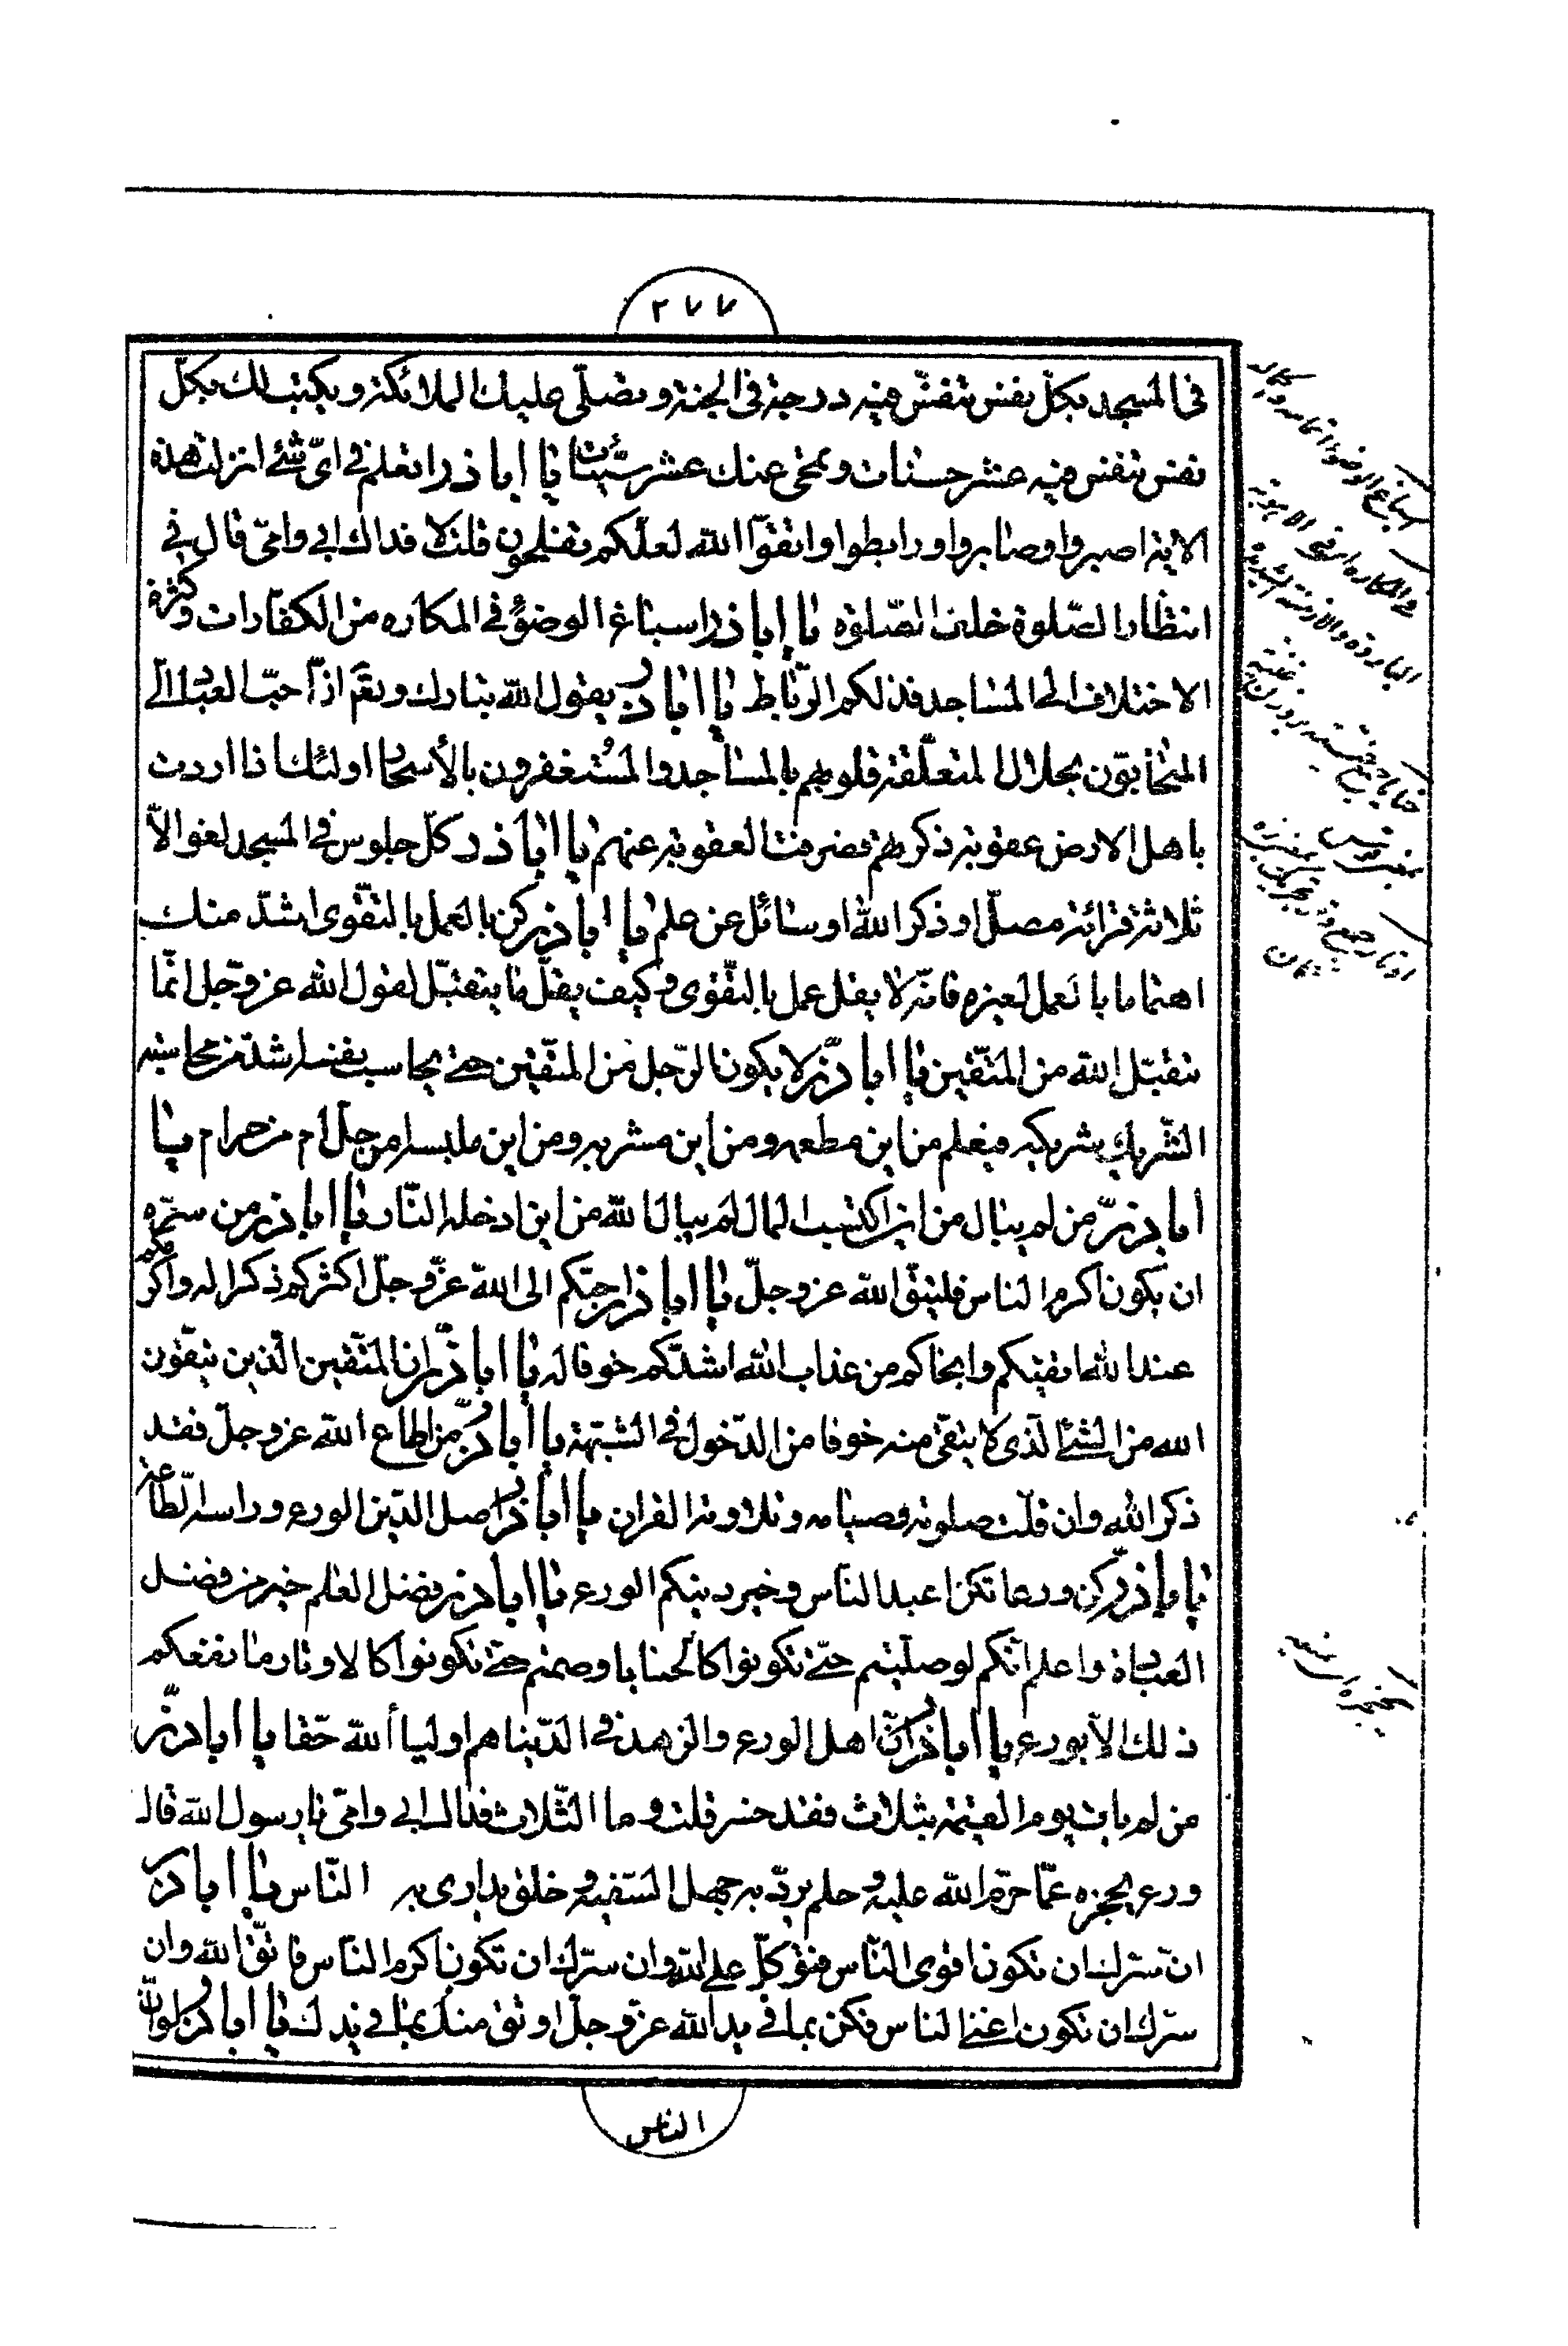 ٢٧٧
فی المسجد بکلّ نفس تتنفّس فیه درجة فی الجنة و تصلّی علیک الملائکة و یکتب لک بکلّ
نفس تنفس فیه عشر حسنات و یمحی عنک عشر سیّئات یا ابا ذر اتعلم فی ایّ شئ انزلت هذه
الایة اصبروا و صابروا و رابطوا و اتقوا الله لعلّکم تفلحون قلت لا فداک ابی و امّی قال فی
انتظار الصّلوة خلف الصّلوة یا ابا ذر اسباغ الوضوء فی المکاره من الکفّارات و کثرة
الاختلاف الی المساجد فذلکم الرّباط یا ابا ذر یقول الله تبارک و تعٰ انّ احبّ العباد الیّ
المتحابّون بجلال المتعلّقة قلوبهم بالمساجد و المستغفرون بالأسحار اولئک اذا اردت
باهل الارض عقوبة ذکرتهم فصرفت العقوبة عنهم یا ابا ذر کلّ جلوس فی المسجد لغو الاّ
ثلاثة قرائة مصلّ او ذکر الله او سائل عن علم یا ابا ذر کن بالعمل بالتقوی اشدّ منک
اهتماما بالعمل لغیره فانّه لا یقل عمل بالتّقوی و کیف یقلّ ما یتقبّل لقول الله عز و جل انّما
یتقبّل الله من المتّقین یا ابا ذرّ لا یکون الرّجل من المتّقین حتی یحاسب نفسه اشدّ من محاسبة
الشّریک شریکه فیعلم من این مطعمه و من این مشربه و من این ملبسه امن حلّ ام من حرام یا
ابا ذرّ من لم یبال من این اکتسب المال لم یبال الله من این ادخله النّار یا ابا ذر من سرّه
ان یکون اکرم الناس فلیتّق الله عز و جلّ یا ابا ذر احبّکم الی الله عزّ و جلّ اکثرکم ذکرا له و اکرمکم
عند الله اتقیکم و انجاکم من عذاب الله اشدّکم خوفا له یا ابا ذرّ ان المتّقین الّذین یتّقون
الله من الشئ الّذی لا یتّقی منه خوفا من الدّخول فی الشبهة یا ابا ذرّ من اطاع الله عز و جلّ فقد
ذکر الله و ان قلّت صلوته و صیامه و تلاوته القران یا ابا ذر اصل الدّین الورع و راسه الطّاعة
یا ابا ذرّ کن ورعا تکن اعبد الناس و خیر دینکم الورع یا ابا ذر فضل العلم خیر من فضل
العبادة و اعلم انّکم لو صلّیتم حتّی تکونوا کالحنایا و صمتم حتّی تکونوا کالاوتار ما نفعکم
ذلک الاّ بورع یا ابا ذر انّ اهل الورع و الزهد فی الدّنیا هم اولیاء الله حقّا یا ابا ذرّ
من لم یات یوم القیمة بثلاث فقد خسر قلت و ما الثّلاث فداک ابی و امّی یا رسول الله قال
ورع یحجزه عمّا حرّم الله علیه و حلم یردّ به جهل السّفیه و خلق یداری به الناس یا ابا ذر
ان سّرک ان تکون اقوی النّاس فتوکّل علی الله و ان سرّک ان تکون اکرم النّاس فاتّق الله و ان
سرّک ان تکون اغنی الناس فکن بما فی ید الله عزّ و جلّ اوثق منک بما فی یدک یا ابا ذر لو انّ
الناس